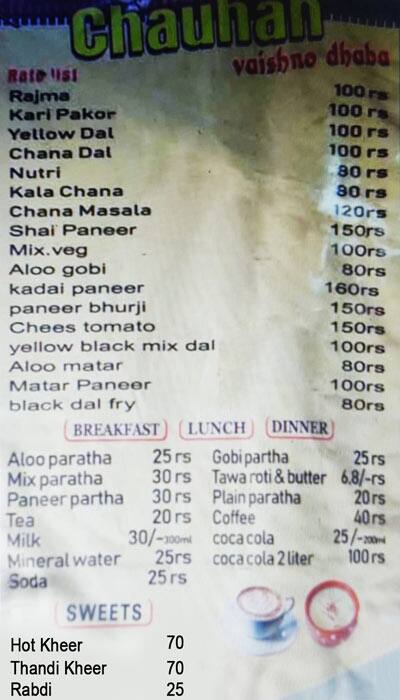 Chauhan
vaishno dhaba
Rate list
Rajma 100 rs
Kari Pakor 100 rs
Yellow Dal 100 rs
Chana Dal 100 rs
Nutri 80 rs
Kala Chana 80 rs
Chana Masala 120rs
Shai Paneer 150rs
Mix.veg 100rs
Aloo gobi 80rs
kadai paneer 160rs
paneer bhurji 150rs
Chees tomato 150rs
yellow black mix dal 100rs
Aloo matar 80rs
Matar Paneer 100rs
black dal fry 80rs
BREAKFAST LUNCH DINNER
Aloo paratha 25 rs
Mix paratha 30 rs
Paneer partha 30 rs
Tea 20 rs
Milk 30/-300ml
Mineral water 25rs
Soda 25 rs
Gobi partha 25 rs
Tawa roti & butter 6,8/-rs
Plain paratha 20 rs
Coffee 40 rs
coca cola 25/-200ml
coca cola 2 liter 100 rs
SWEETS
Hot Kheer 70
Thandi Kheer 70
Rabdi 25